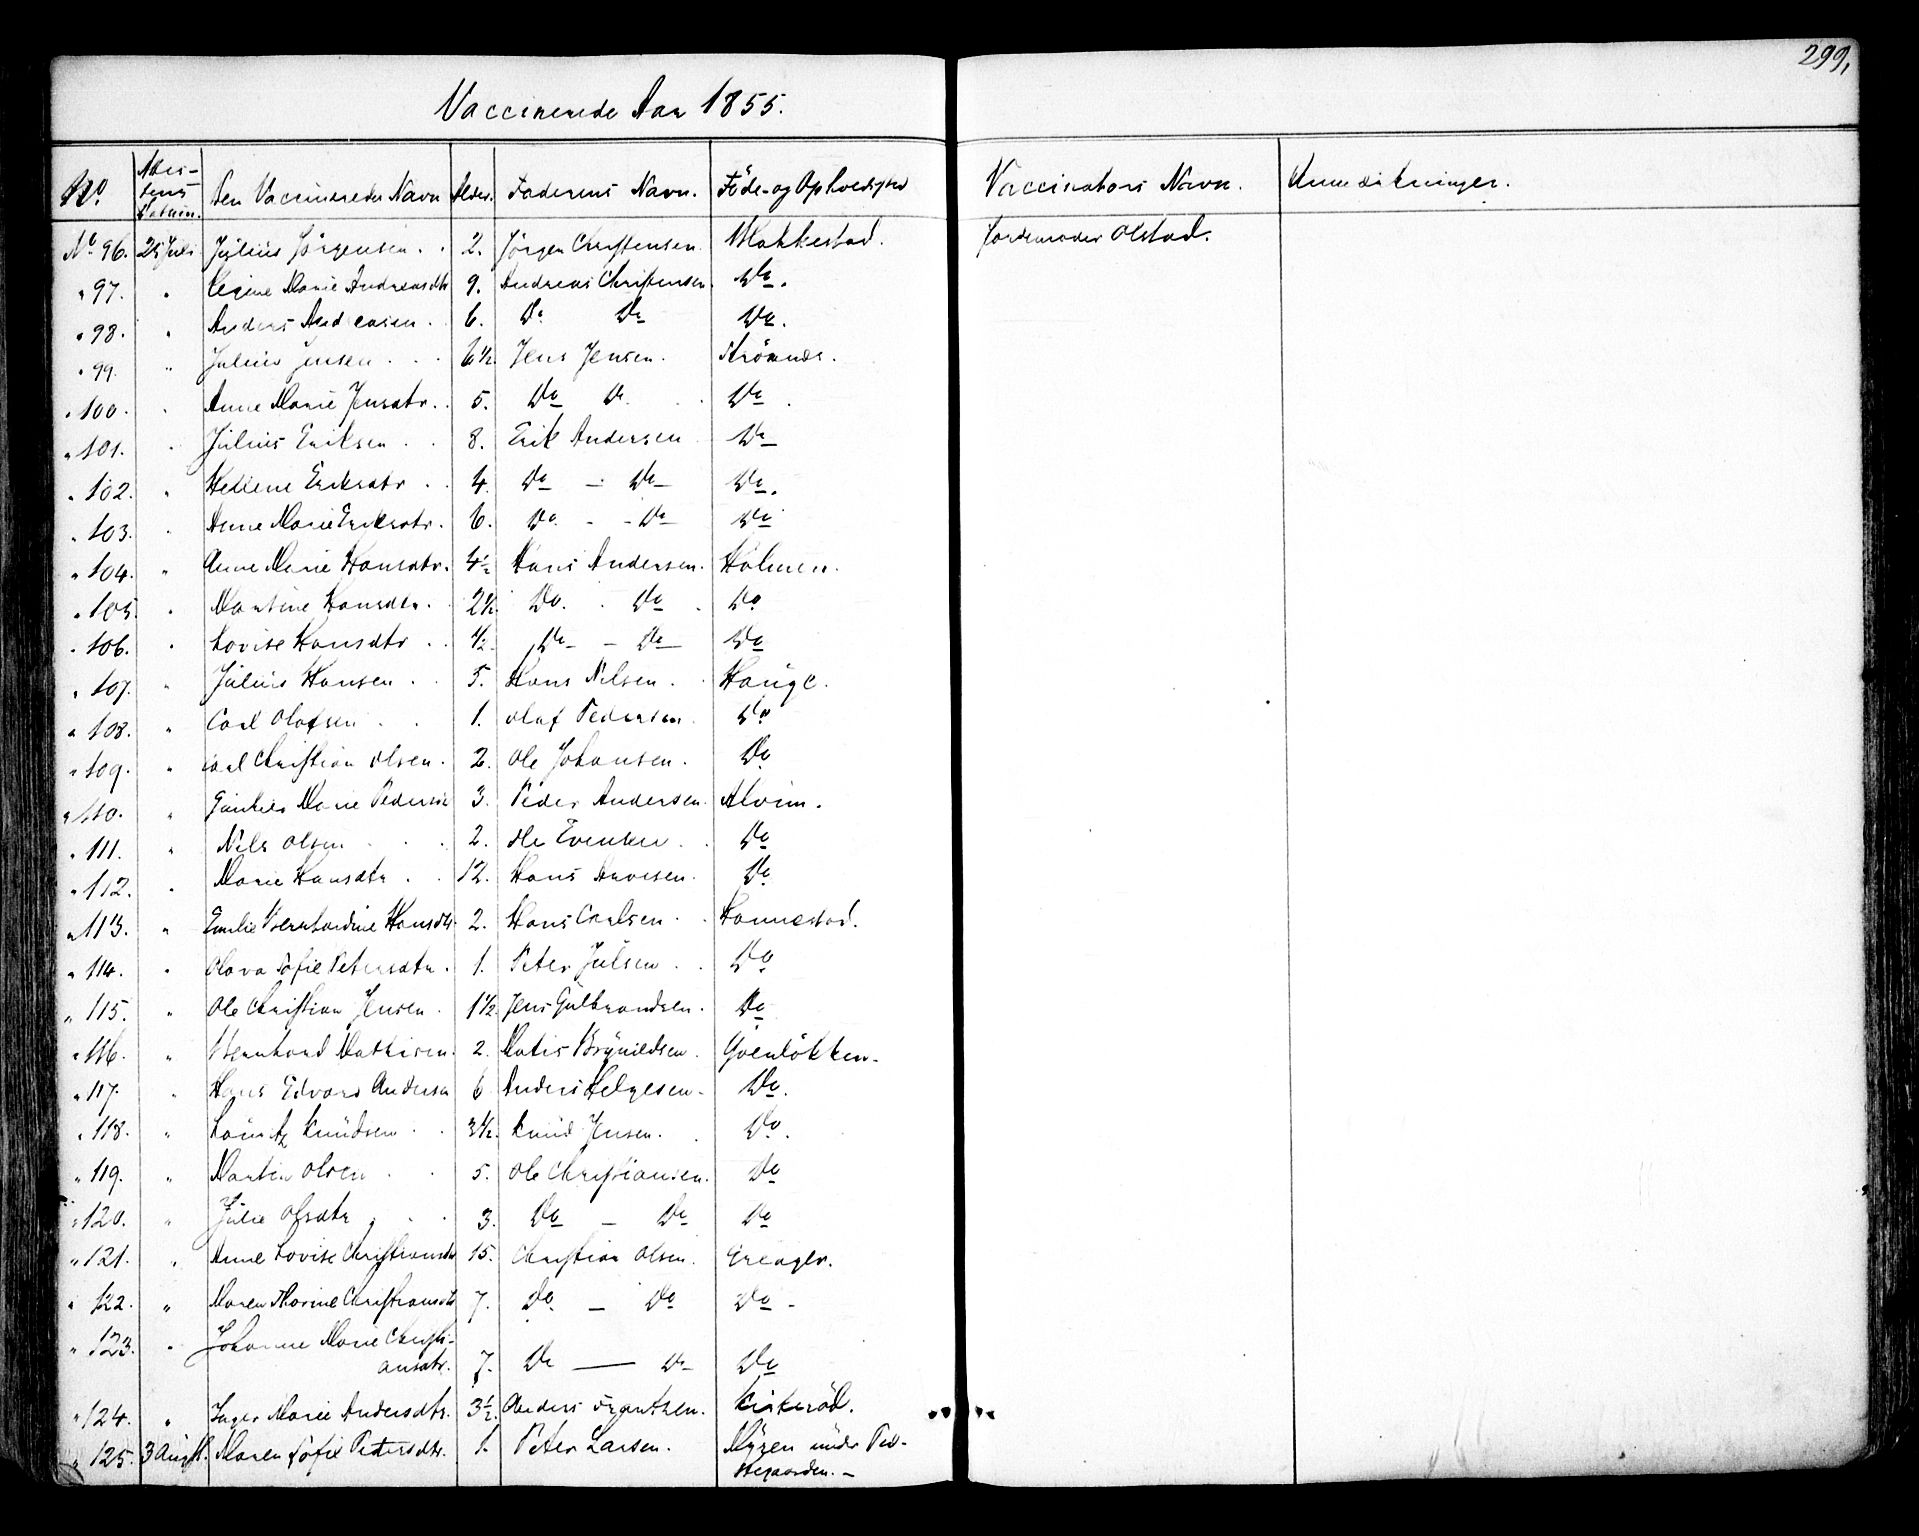 299,
Vaccinerede Aar 1855.
No. Attestens Datum. Den Vaccineredes Navn Alder. Faderens Navn. Föde- og Opholdssted Vaccinators Navn. Anmærkninger.
No. 96. 25 Juli Julius Jörgensen . . 2. Jörgen Christensen. Makkestad. Jordemoder Olstad.
" 97. " Marie Andreasdtr 9. Andreas Christensen. Do.
" 98. " Anders Andreasen . 6. Do Do Do.
" 99. " Julius Jensen . . . 6½ Jens Jensen.
" 100. " Anne Marie Jensdtr. . 5. Do Do . . Do .
" 101. " Julius Eriksen . . 8. Erik Andersen Do
" 102. " Eriksdtr . . 4. Do - Do Do.
" 103. " Anne Marie Eriksdtr. . 6. Do. - - Do Do
" 104. " Anne Marie Hansdtr. 4½ Hans Andersen. Holmen.
" 105. " Martine Hansdtr. . 2½. Do. . Do . Do
" 106. " Lovise Hansdtr . . ½. Do - Do Do
" 107. " Julius Hansen . . 5. Hans Nilsen . . Hauge.
" 108. " Carl Olafsen . . 1. Olaf Pedersen . Do
" 109. " Carl Christian Olsen. 2. Ole Johansen . Do
" 110. " Marie Pedersd 3. Peder Andersen. Alvim.
" 111. " Nils Olsen . . . 2. Ole Evensen . . Do
" 112. " Marie Hansdtr . . 12. Hans Arvesen. Do
" 113. " Emilie Bernhardine Hansdtr. 2. Hans Carlsen . . Hannestad.
" 114. " Olava Sofie Petersdtr . 1. Peter Julsen . . Do
" 115. " Ole Christian Jensen . 1½. Jens Gulbrandsen. Do
" 116. " Bernhard Mathisen. 2. Matis Brynildsen. Gvenlökken.
" 117. " Hans Edvard Andersen 6 Anders Helgesen. Do.
" 118. " Lauritz Knudsen . . 3½. Knud Jensen. . Do.
" 119. " Martin Olsen . . 5. Ole Christiansen. Do
" 120. " Julie Olsdtr . . . 3. Do - Do Do
" 121. " Anne Lovise Christiansdtr 15. Christian Olsen.
" 122. " Maren Marine Christiansdtr 7. Do. - Do Do -
" 123. " Johanne Marie Christi-
ansdtr. 7. Do — Do Do
" 124. " Inger Marie Andersdtr. 3½. Anders Frantsen. Kirkeröd.
" 125. 3 August. Maren Sofie Petersdtr. 1. Peter Larsen. Myren under Præ-
stegaarden. -